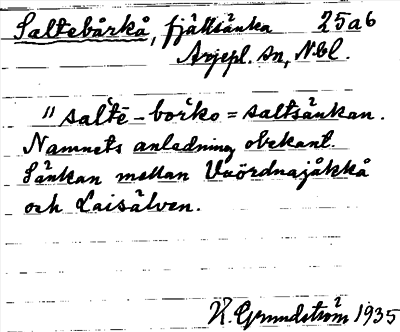 Saltebårkå, fjällsänka 25a6
Arjepl. sn, Nbl.
"saltē-bořko = saltsänkan.
Namnets anledning obekant.
Sänkan mellan Vuördnajåkkå
och Laisälven.
K. Grundström 1935